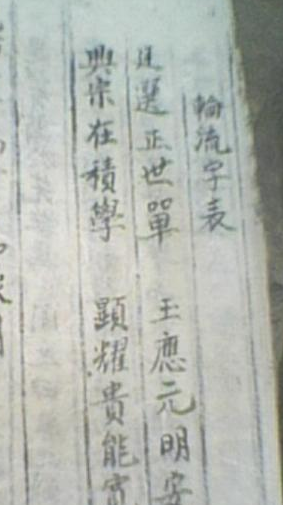 輪流字表
選正世單 王應元明安
興宗在積學 顯耀貴能